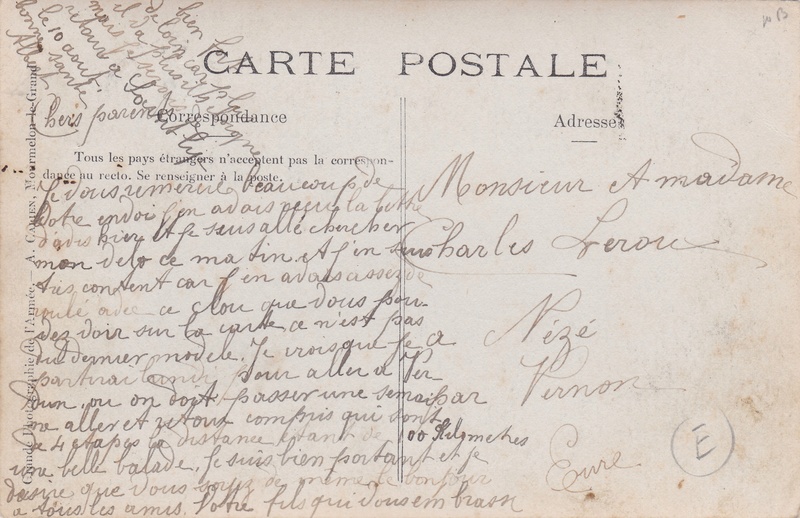 CARTE POSTALE
Correspondance
Adresse
Tous les pays étrangers n'acceptent pas la correspon-
dance au recto. Se renseigner à la poste.
Grande Photographie de l'Armée. — A. CAHEN, Mourmelon-le-Grand
Chers parents
Je vous remercie beaucoup de
votre envoi j'en avais reçu la lettre
d'avis hier et je suis allé chercher
mon vélo ce matin et j'en suis
très content car j'en avais assez de
roulé avec ce clou que vous pou-
vez voir sur la carte ce n'est pas
du dernier modèle. Je crois que je
partirai lundi pour aller a Ver
dun, ou on doit passer une semai
ne aller et retour compris qui sont
de 4 étapes la distance étant de
00 kilometres
une belle balade, je suis bien portant et je
desire que vous soyez de même le bonjour
a tous les amis. Votre fils qui vous embrasse
bien
de loin car
il y a
mais je serai
retour a
le 10 aout
bonne santé
Monsieur et madame
Charles Lerou
a Nézé
par Vernon
Eure
E